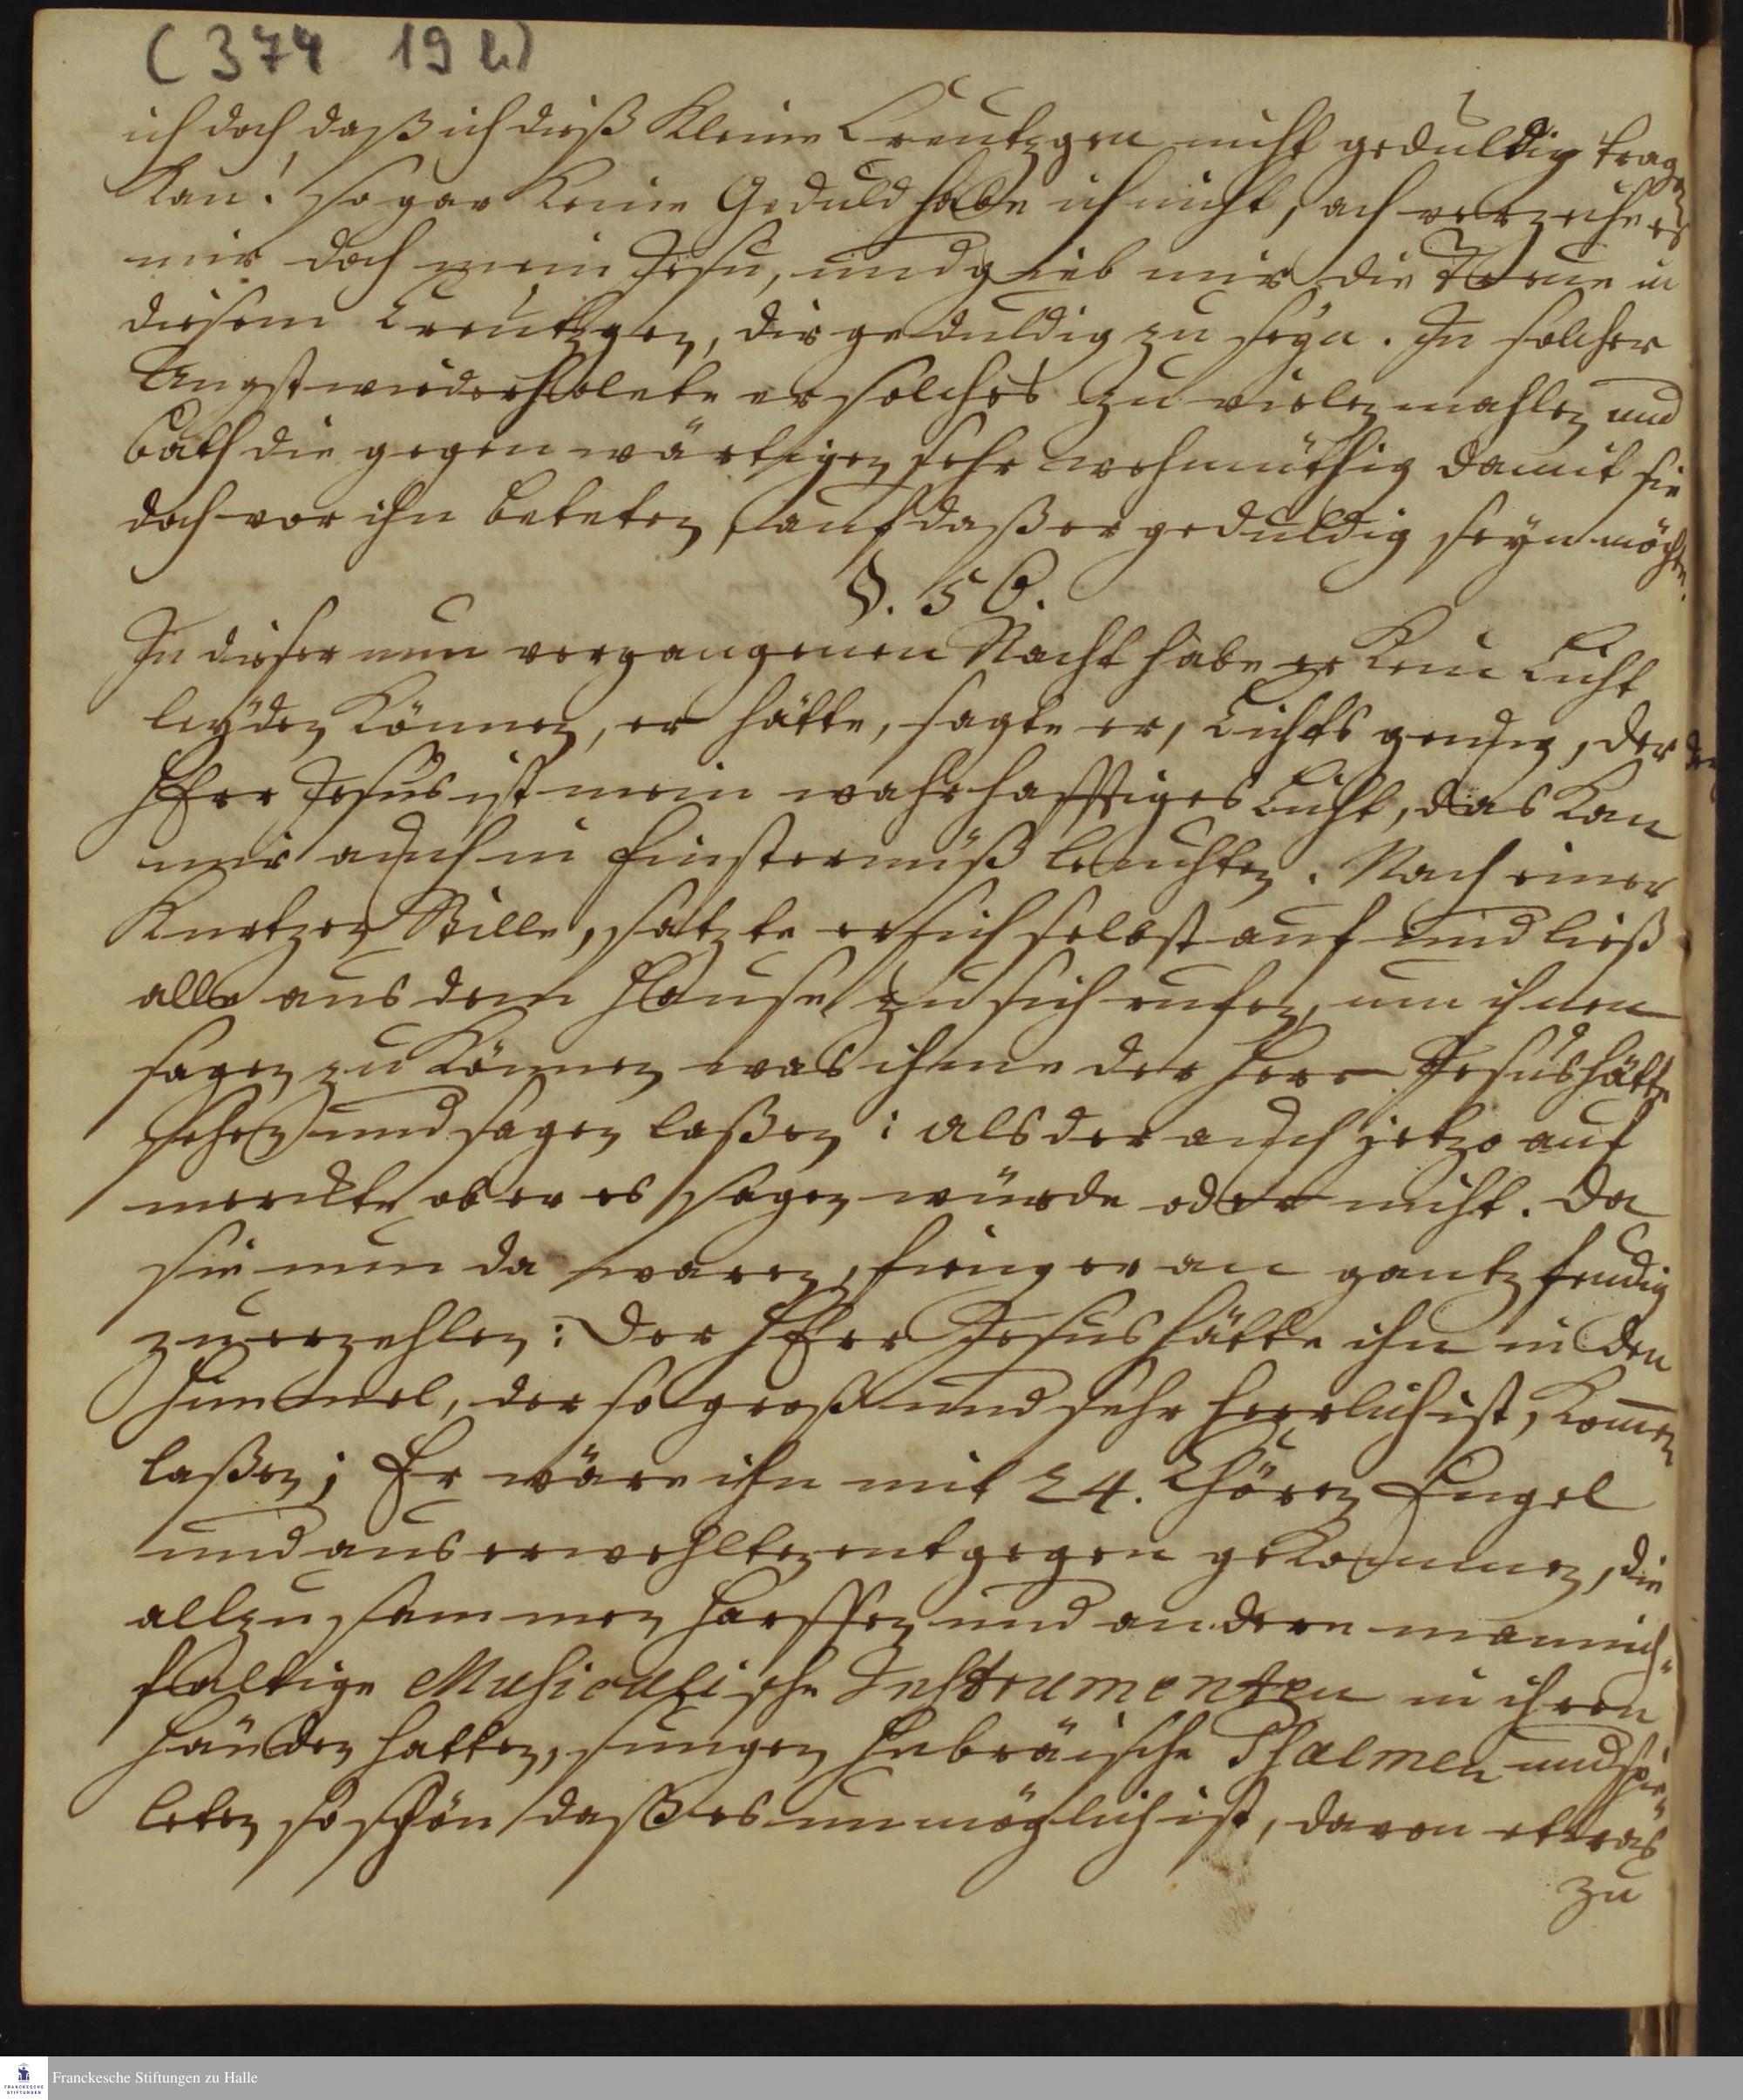 (374 19 b)
ich doch, daß ich dieß kleine Creutzgen nicht geduldig tragen
kan! so gar keine Geduld habe ich nicht, ach verzeihe es
mir doch mein Jesu, und gieb mir die Treue in
diesem Creutzgen, dir geduldig zu seyn. In solcher
Angst wiederholete er solches zu vielen mahlen und
bath die gegenwärtigen sehr wehmüthig damit sie
doch vor ihn beteten, auf daß er geduldig seyn möchte.
§. 56.
In dieser nun vergangenen Nacht habe er kein Licht
leyden können, er hätte, sagte er, Lichts genug, der
HErr Jesus ist mein wahrhafftiges Licht, das kan
mir auch in Finsternüß leuchten. Nach einer
kurtzen Stille, satzte er sich selbst auf und ließ
alle aus dem Hause zu sich rufen, um ihnen
sagen zu können was ihme der Herr Jesus hätte
sehen und sagen laßen: als der auch jetzo auf
merckte, ob er es sagen würde oder nicht. Da
sie nun da waren, fieng er an gantz freudig
zu erzehlen: Der HErr Jesus hätte ihn in den
Himmel, der so groß und sehr herrlich ist, kom̄en
laßen; Er wäre ihn mit 24. Chören Engel
und auserwehlten entgegen gekommen, die
allzusammen Harffen und andere mannich-
faltige Musicalische Instrumenten in ihren
Händen hatten, sungen Hebräische Psalmen und spie-
leten so schön daß es unmöglich ist, davon etwas
zu
Franckesche Stiftungen zu Halle